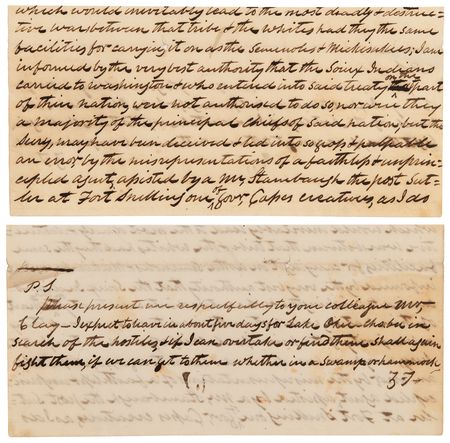 which would inevitably lead to the most deadly & destruc-
tive war between that tribe & the Whites had they the same
facilities for carrying it on as the Semenoles & Mickisukies; I am
informed by the very best authority that the Soiux Indians
carried to Washington & who entered into said treaty on the part
of their nation, were not authorised to do so, nor were they
a majority of the principal Chiefs of said nation, but the
Secy, may have been deceived & led into so gross & palpable
an error by the misrepresentations of a faithless & unprin-
cepled agent, assisted by a Mr. Stambaugh the post Sut-
ler at Fort Snelling one of Govr. Casses creatures, as I do
P.S.
Please present me respectfully to your colleague Mr
Clay – I expect to leave in about five days for Lake Oke chabe in
search of the hostiles & if I can overtake or find them shall again
fight them, if we can get to them whether in a Swamp or hammock